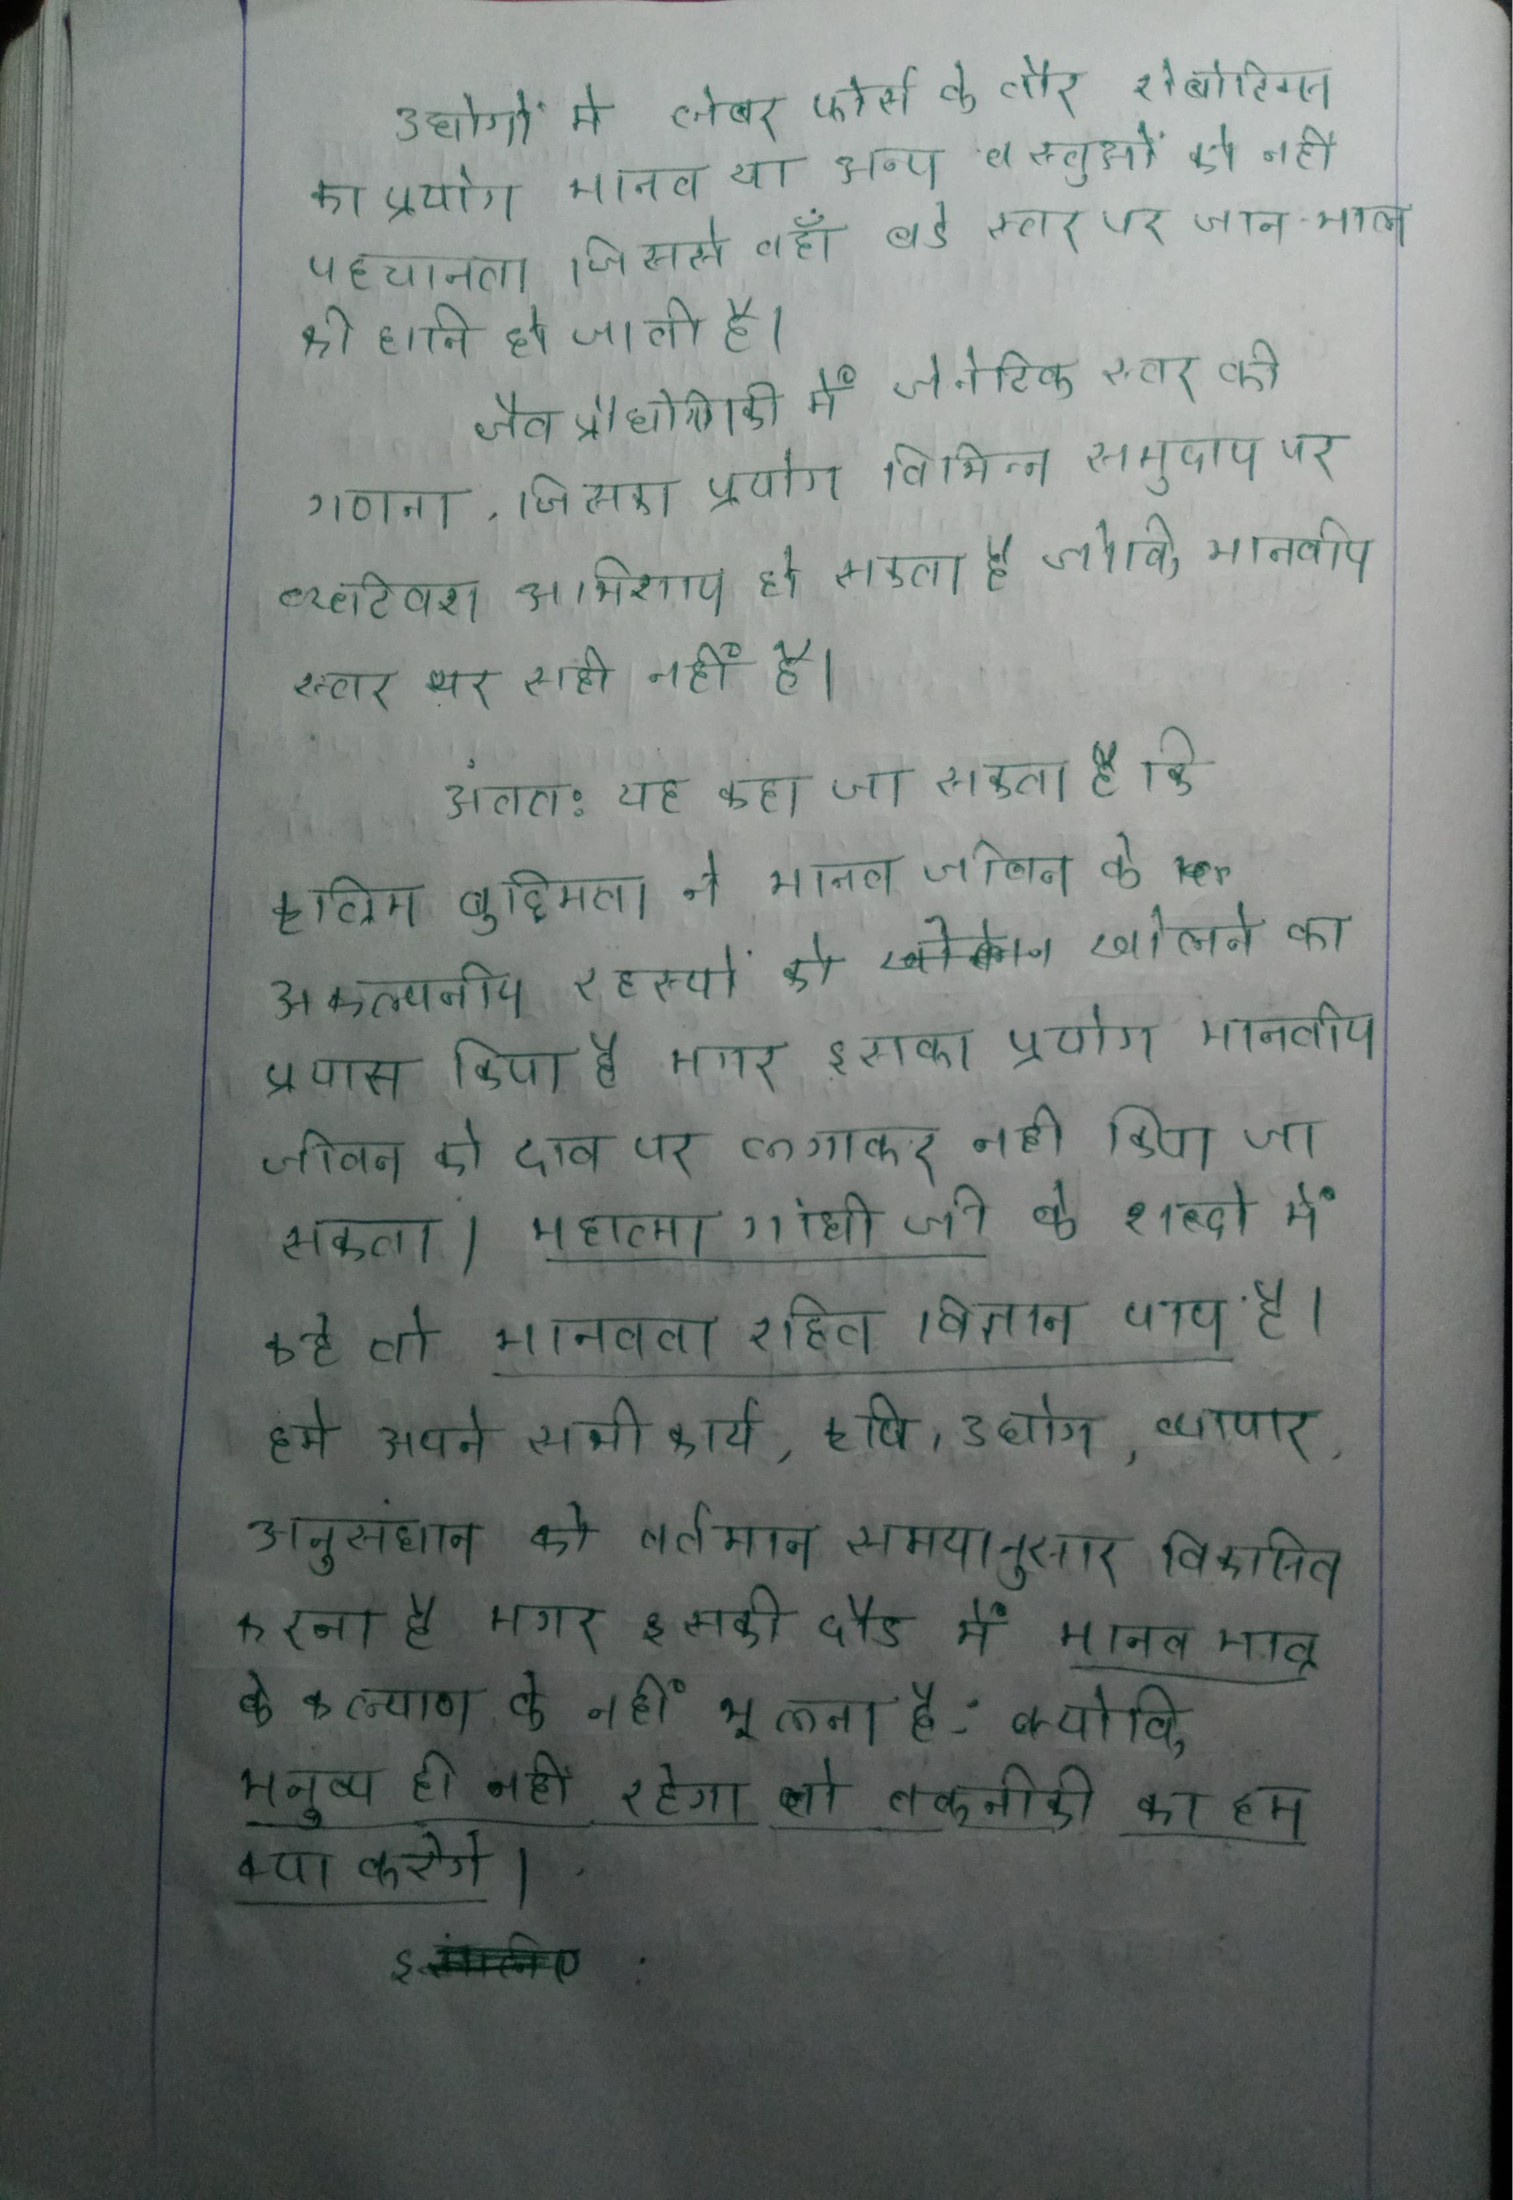 उद्योगों मे लेबर फोर्स के तौर रोबोटिक्स
का प्रयोग मानव या अन्य वस्तुओं को नही
पहचानता जिससे वहाँ बडे स्तर पर जान-माल
की हानि हो जाती है।
जैव प्रौद्योगिकी में जेनेटिक स्तर की
गणना, जिसका प्रयोग विभिन्न समुदाय पर
अभिशाप हो सकता है जोकि मानवीय
स्तर पर सही नहीं है।
अंततः यह कहा जा सकता है कि
कृत्रिम बुद्दिमता ने मानव जीवन के
अकल्पनीय रहस्यों को खोलने का
प्रयास किया है मगर इसका प्रयोग मानवीय
जीवन को दाव पर लगाकर नही किया जा
सकता। महात्मा गांधी जी के शब्दो में
कहे तो मानवता रहित विज्ञान पाप है।
हमे अपने सभी कार्य, कृषि, उद्योग, व्यापार,
अनुसंधान को वर्तमान समयानुसार विकसित
करना है मगर इसकी दौड में मानव मात्र
के कल्याण के नहीं भूलना है- क्योकि
मनुष्य ही नहीं रहेगा तो तकनीकी का हम
क्या करेगे।